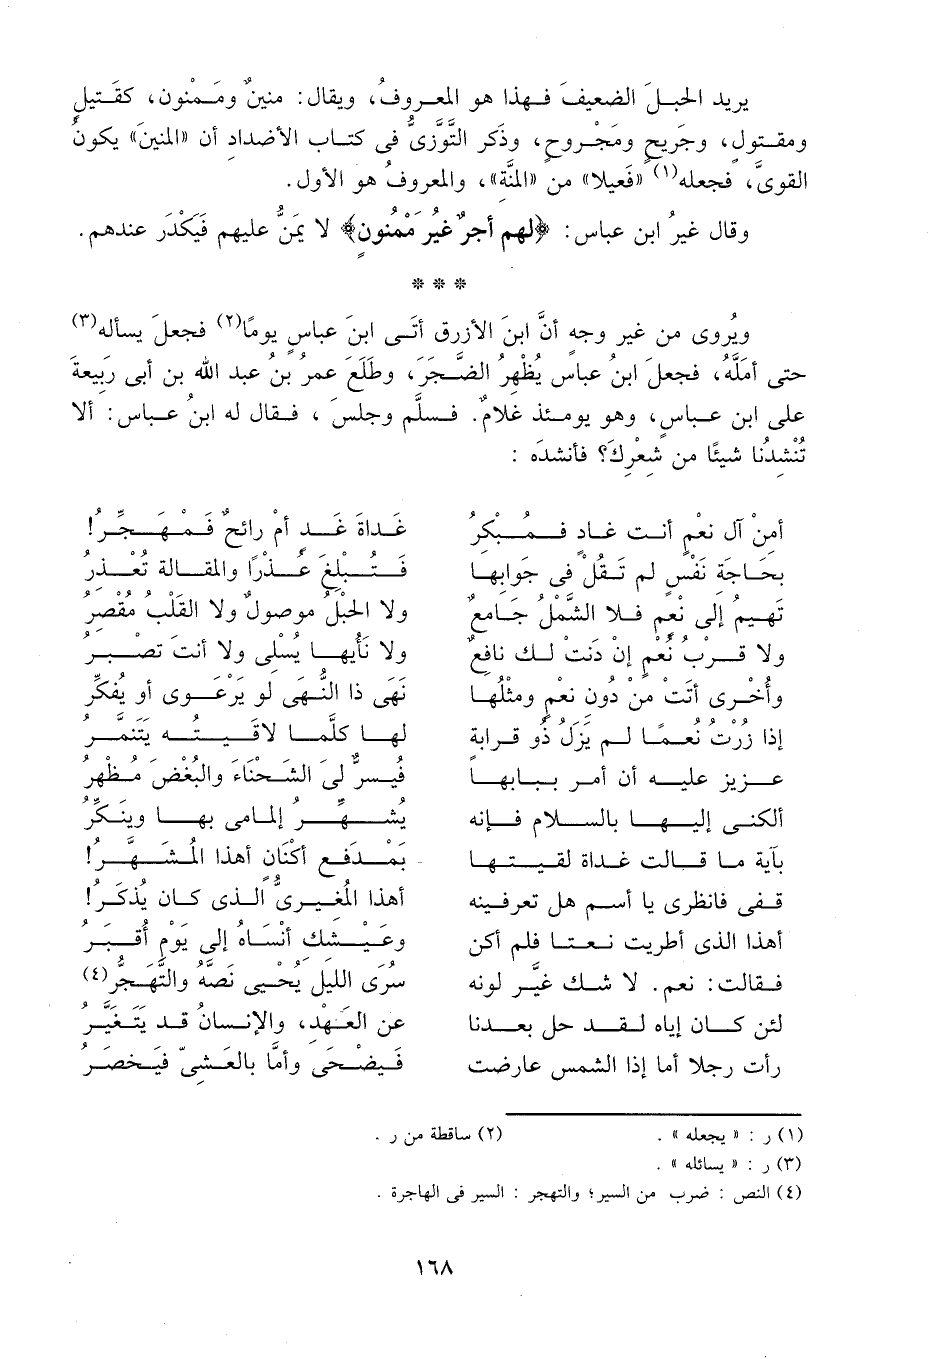 يريد الحبلَ الضعيفَ فهذا هو المعروفُ، ويقال: منينٌ وممنون، كقَتيلٍ
ومقتول، وجَريحٍ ومجروحٍ، وذكر التَّوَّزىُّ فى كتاب الأضداد أن «المنينَ» يكونُ
القوىَّ، فجعله(١) «فَعيلا» من «المُنَّة»، والمعروفُ هو الأول.
وقال غيرُ ابن عباس: ﴿لهم أجرٌ غيرُ مَمْنونٍ﴾ لا يُمنُّ عليهم فيُكدَّر عندهم.
***
ويُروى من غير وجه أنَّ ابنَ الأزرق أتَى ابنَ عباسٍ يومًا(٢) فجعلَ يسأله(٣)
حتى أملَّهُ، فجعلَ ابن عباسٍ يُظهرُ الضَّجرَ، وطَلَعَ عمرُ بن عبد الله بن أبى ربيعة
على ابن عباسٍ، وهو يومئذٍ غلامٌ. فسلَّم وجلسَ، فقال له ابنُ عباس: ألا
تُنْشدُنا شيئًا من شعرِك؟ فأنشدَه :
أمنْ آل نعْمٍ أنت غادٍ فمُبْكرُ غداةَ غَدٍ أمْ رائحٌ فمُهَجِّرُ!
بحاجة نَفْسٍ لم تَقُلْ فى جوابها فتُبلغَ عُذْرًا والمقالة تُعْذرُ
تَهيمُ إلى نُعْمٍ فلا الشَّمْلُ جامعٌ ولا الحبلُ موصولٌ ولا القلبُ مُقصرُ
ولا قُربُ نُعْمٍ إن دَنتْ لك نافعٌ ولا نأيُها يُسلى ولا أنت تَصبرُ
وأخرى أتتْ منْ دون نُعْمٍ ومثلُها نَهى ذا النُّهى لو يَرْعوى أو يُفكِّرُ
إذا زُرْتُ نُعْمًا لم يَزَلْ ذو قرابةٍ لها كلَّما لاقَيتُه يتنمَّرُ
عزيز عليه أن أمرَ ببابها مُسرٌّ لى الشَّحناءَ والبُغْضَ مُظهرُ
ألكنى إليها بالسلام فإنه يُشهَّرُ إلمامى بها ويُنكَّرُ
بآية ما قالت غداة لقيتها بمدفع أكنان أهذا المُشهَّرُ!
قفى فانظرى يا أسم هل تعرفينه أهذا المُغيرىُّ الذى كان يُذكرُ!
أهذا الذى أطريت نعتا فلم أكن وعيشك أنساهُ إلى يَوْمِ أُقبَرُ
فقالت: نعم. لا شك غيَّر لونه سُرَى الليل يُحيى نَصَّهُ والتَّهجُّرُ(٤)
لئن كان إياه لقد حل بعدنا عن العَهْدِ، والإنسانُ قد يَتغيَّرُ
رأت رجلا أما إذا الشمس عارضت فيَضْحى وأمَّا بالعشىِّ فيَخصَرُ
(١) ر : « يجعله » . (٢) ساقطة من ر .
(٣) ر : « يسائله » .
(٤) النص : ضرب من السير؛ والتهجر : السير فى الهاجرة .
١٦٨